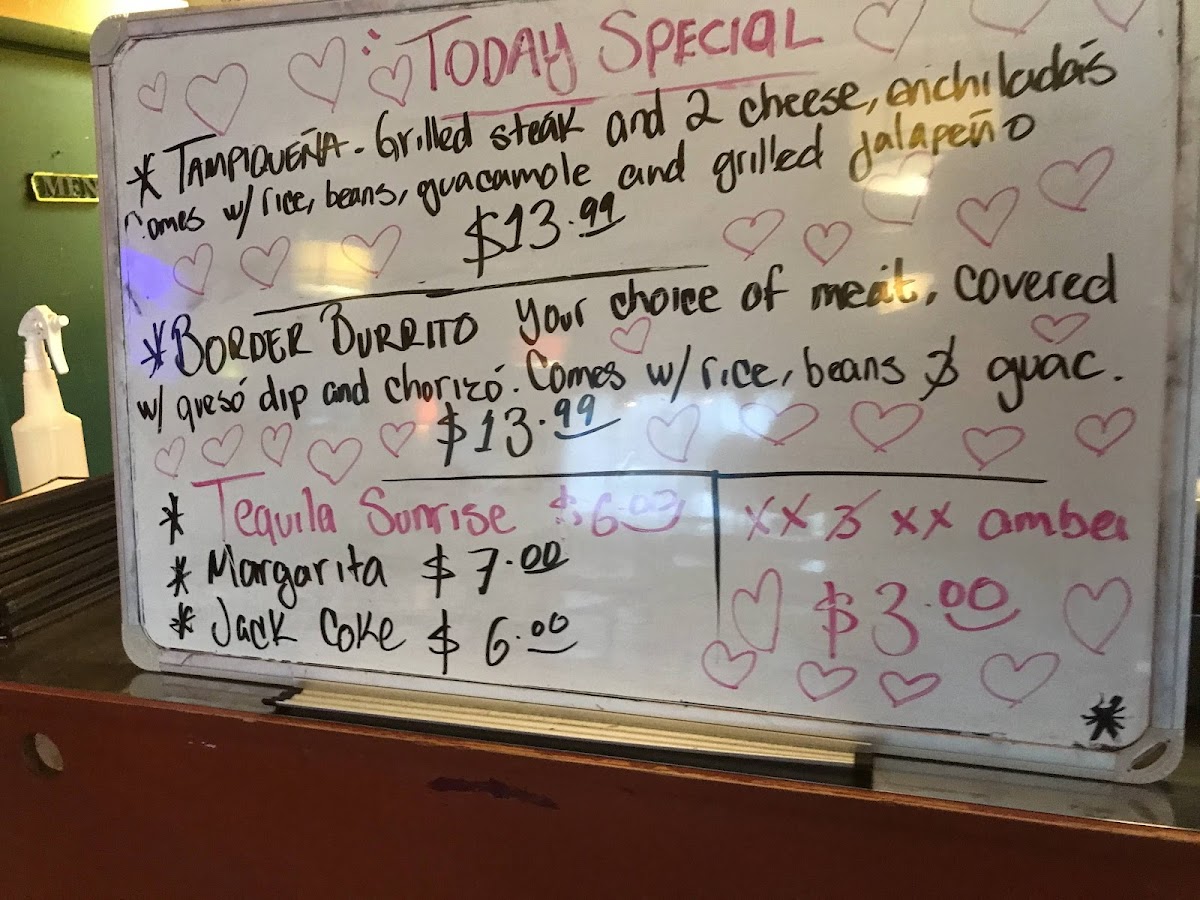 MEN
TODAY SPECIAL
* TAMPIQUEÑA - Grilled steak and 2 cheese, enchiladas
comes w/ rice, beans, guacamole and grilled jalapeño
$13.99
* BORDER BURRITO Your choice of meat, covered
w/ quesó dip and chorizó. Comes w/ rice, beans & guac.
$13.99
* Tequila Sunrise
* Margarita $7.00
* Jack Coke $6.00
XX & XX amber
$3.00
*